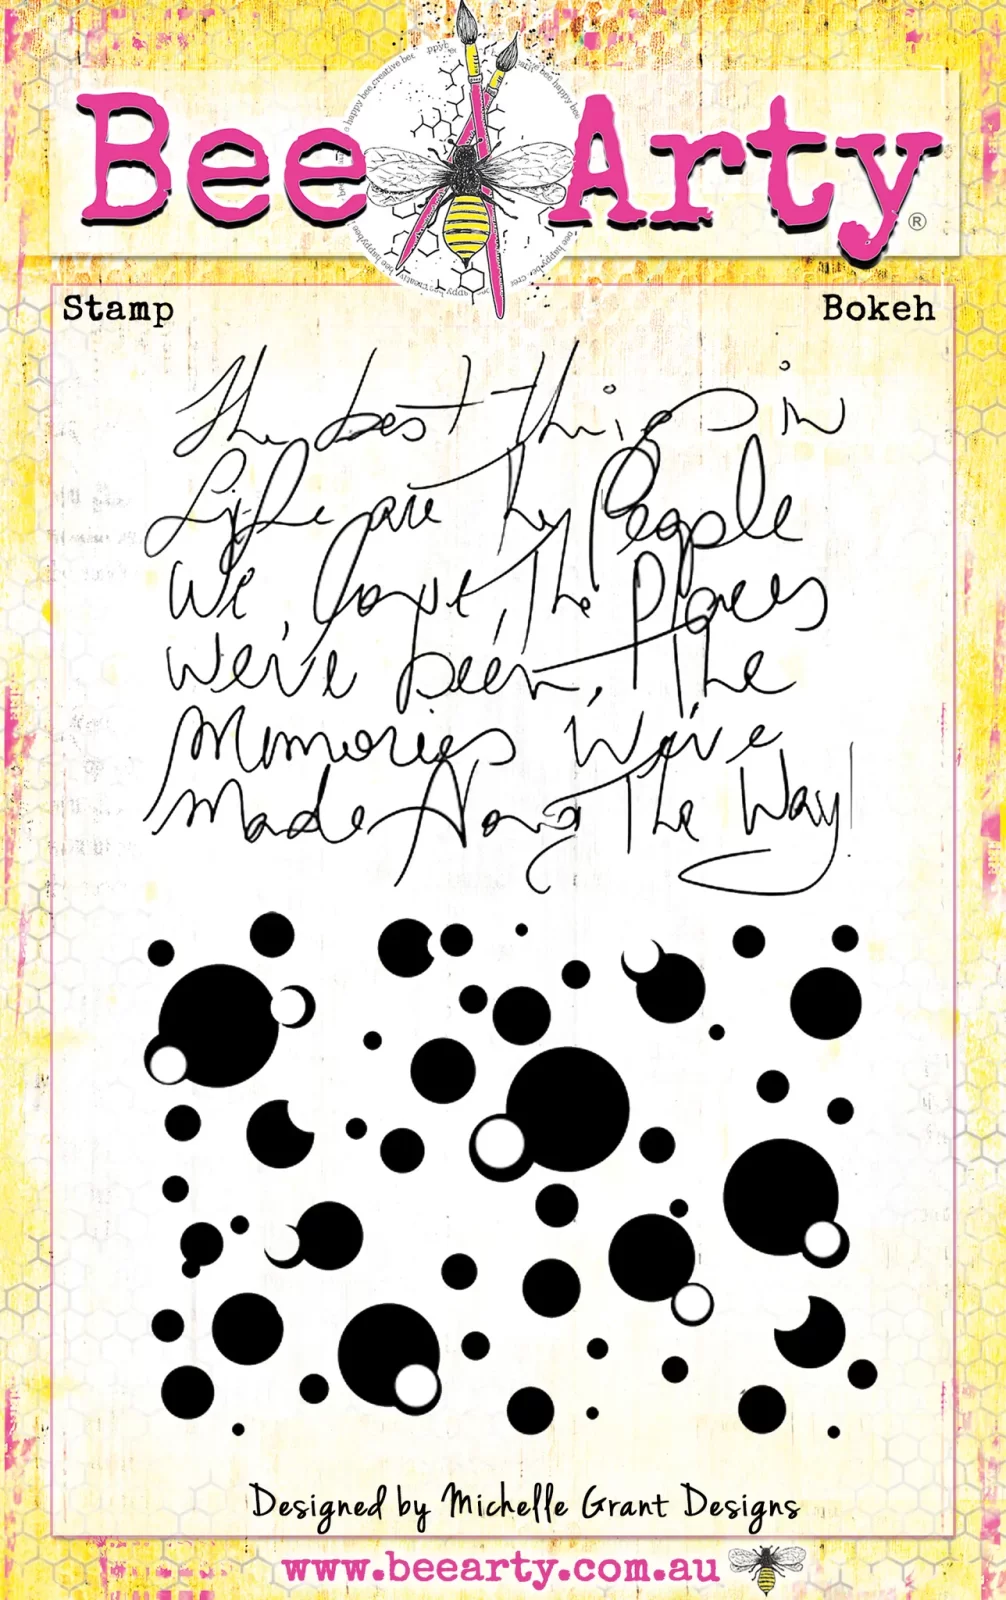 Bee Arty®
Stamp
Bokeh
The best things in
Life are The People
We Love, The Places
We've been, The
Memories We've
Made Along The Way!
Designed by Michelle Grant Designs
www.beearty.com.au